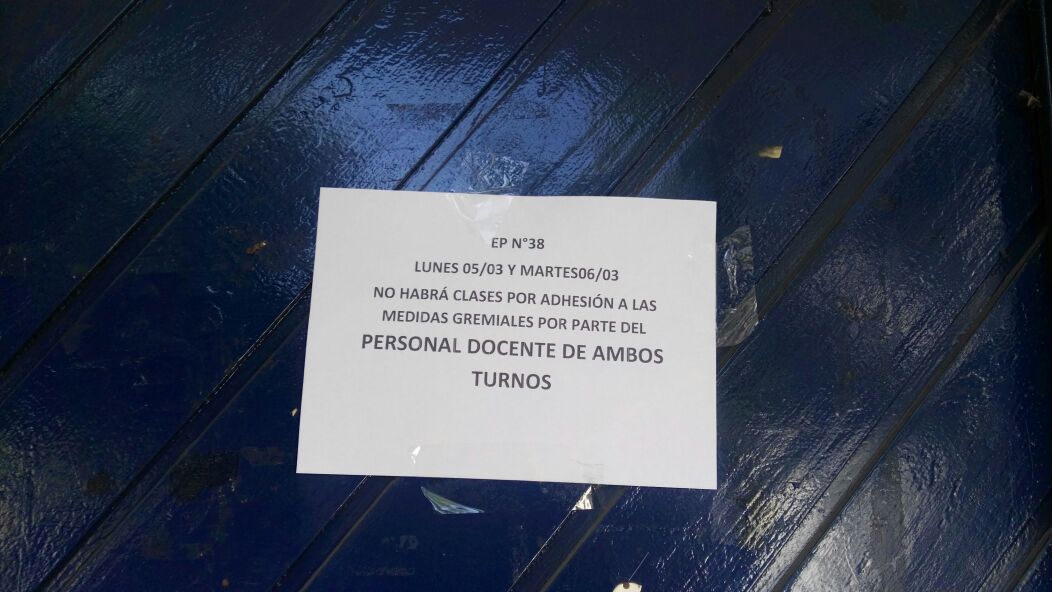 EP N°38
LUNES 05/03 Y MARTES06/03
NO HABRÁ CLASES POR ADHESIÓN A LAS
MEDIDAS GREMIALES POR PARTE DEL
PERSONAL DOCENTE DE AMBOS
TURNOS